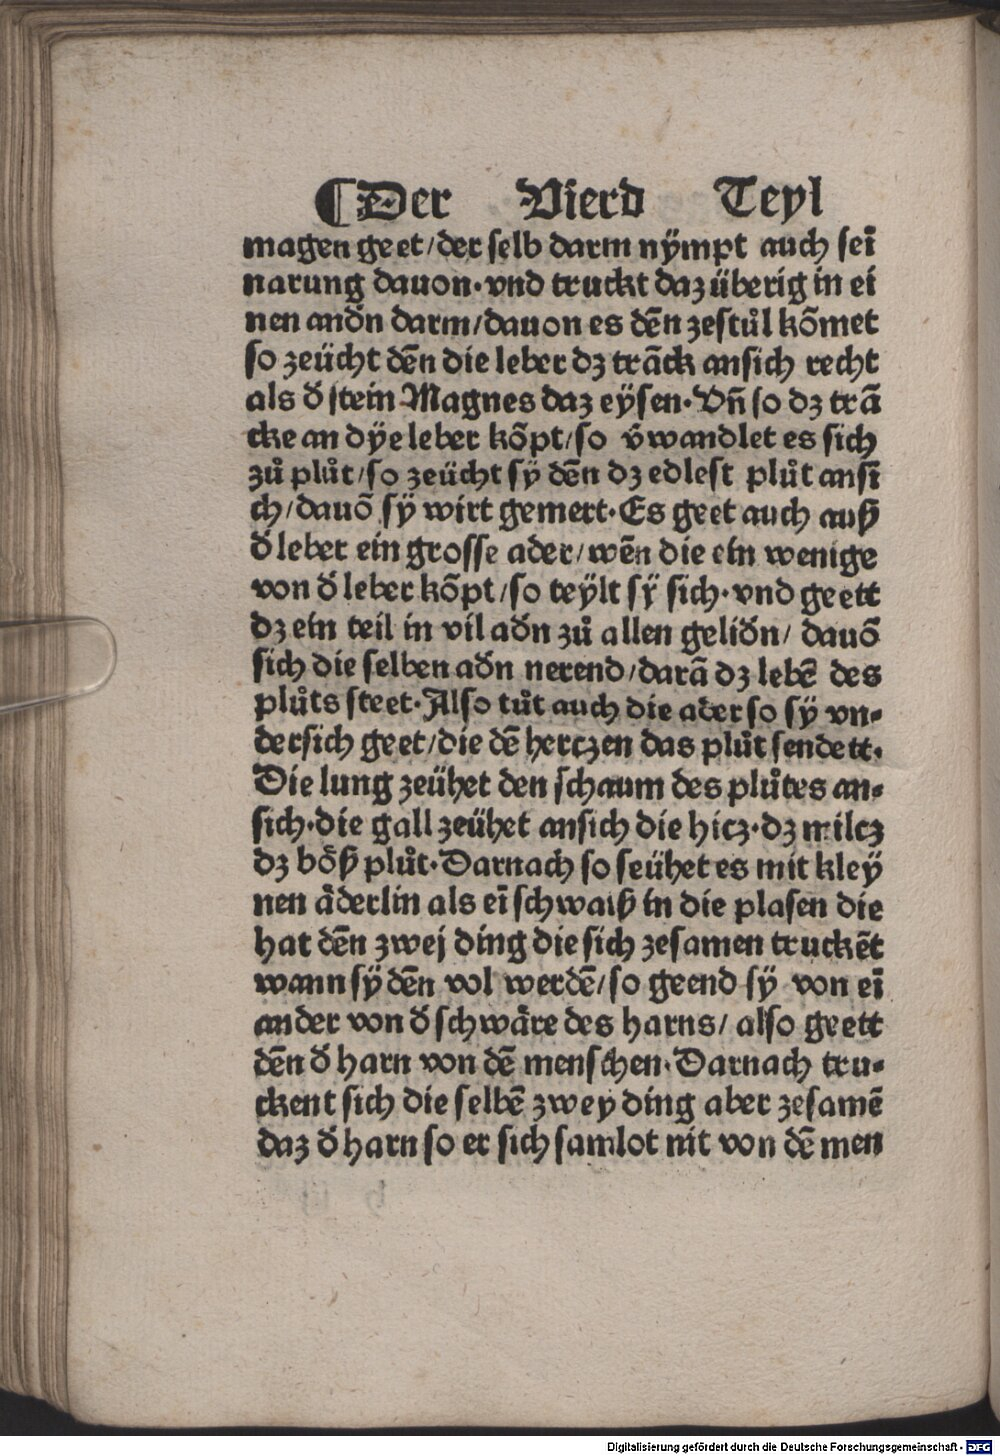 ¶Der Vierd Teyl
magen geet/der selb darm nÿmpt auch seī
narung dauon·vnd truckt daz überig in ei
nen andn̄ darm/dauon es dēn zestůl kōmet
so zeücht dēn die leber dz trāck ansich recht
als d̄ stein Magnes daz eÿsen·Vn̄ so dz trā
cke an dÿe leber kōpt/so v̄wandlet es sich
zů plůt/so zeücht sÿ dēn dz edlest plůt ansī
ch/dauō sÿ wirt gemert·Es geet auch auß
d̄ leber ein grosse ader/wēn die ein wenige
von d̄ leber kōpt/so teÿlt sÿ sich·vnd geett
dz ein teil in vil adn̄ zů allen gelidn̄/ dauō
sich die selben adn̄ nerend/darā dz lebē des
plůts steet·Also tůt auch die ader so sÿ vn-
dersich geet/die dē hertzen das plůt sendett·
Die lung zeühet den schaum des plůtes an-
sich·die gall zeühet ansich die hicz·dz milcz
dz böß plůt·Darnach so seühet es mit kleÿ
nen äderlin als eī schwaiß in die plasen die
hat dēn zwej ding die sich zesamen truckēt
wann sÿ dēn vol werdē/so geend sÿ von eī
ander von d̄ schwäre des harns/also geett
dēn d̄ harn von dē menschen·Darnach tru-
ckent sich die selbē zwey ding aber zesamē
daz d̄ harn so er sich samlot nit von dē men
Digitalisierung gefördert durch die Deutsche Forschungsgemeinschaft - DFG